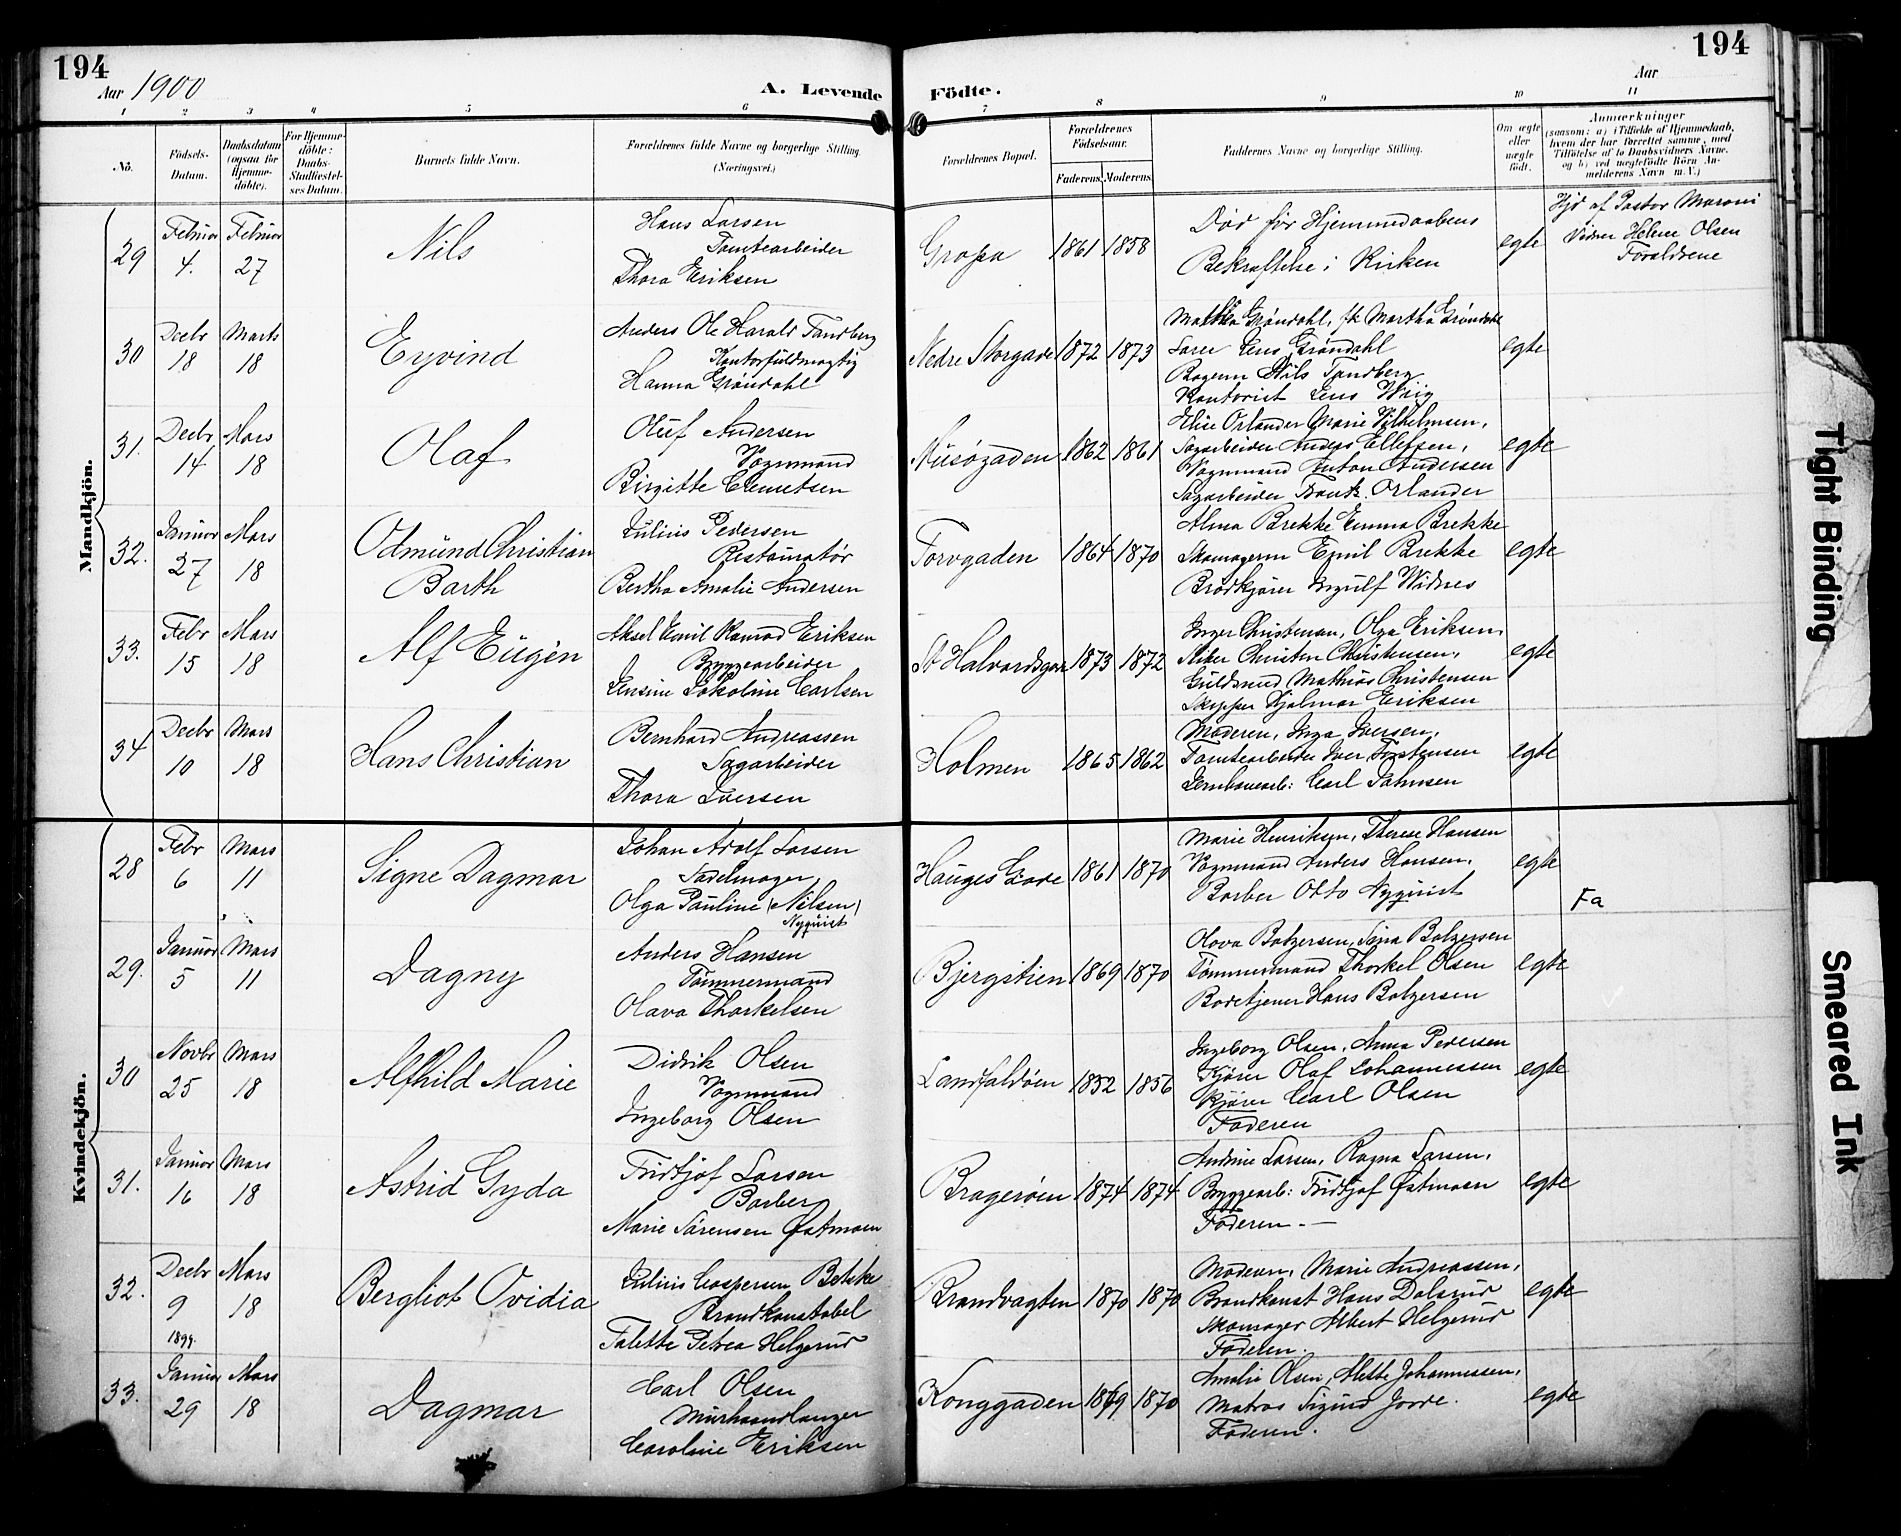 194
Aar 1900
A. Levende Födte.
194
Aar
1 2 3 4 5 6 7 8 9 10 11
No.
Födsels-Datum.
Daabsdatum (ogsaa for Hjemme-döbte).
For Hjemme-döbte: Daabs-Stadfæstel-ses Datum.
Barnets fulde Navn.
Forældrenes fulde Navne og borgerlige Stilling. (Næringsvei.)
Forældrenes Bopæl.
Forældrenes Födselsaar.
Faderens. Moderens.
Faddernes Navne og borgerlige Stilling.
Om ægte eller uægte födt.
Anmærkninger
(saasom: a) i Tilfælde af Hjemmedaab, hvem der har forrettet samme, med Tilföielse af to Daabsvidners Navne, og b) ved uægtefödte Börn Anmelderens Navn m. V.)
Mandkjön.
29 Februar 4. Februar 27
Nils
Hans Larsen
Tomtearbeider
Thora Eriksen
1861 1858
Död før Hjemmedaabens
Bekræftelse i Kirken
egte
Hjd af Pastor Maroni
Vidner Helene Olsen
Forældrene
30 Decbr 18 Marts 18
Eyvind
Anders Ole Harald Tandberg
Kontorfuldmægtig
Hanna Grøndahl
Nedre Storgade 1872 1873
Martha Grøndahl, fk Martha Grøndahl
Jens Grøndahl
Nils Tandberg
Kontorist Jens Wiig
egte
31. Decbr 14 Mars 18
Olaf
Oluf Andersen
Vognmand
Birgitte Clemetsen
1862 1861
Elise Orlander Marie Vilhelmsen,
Sagarbeider Anders Ellefsen,
Vognmand Anton Andersen
Sagarbeider Frantz Orlander
egte
32. Januar 27 Mars 18
Odmund Christian
Barth
Julius Pedersen
Restauratør
Bertha Amalie Andersen
Torvgaden 1864 1870
Alma Brekke Emma Brekke
Skomagerm Emil Brekke
Brødkjører Ingulf Widnes
egte
33. Febr 15 Mars 18
Alf Eugen
Aksel Emil Konrad Eriksen
Bryggearbeider
Jensine Jakobine Carlsen
St Halvardsgar 1873 1872
Inger Christensen, Olga Eriksen,
Christen Christensen,
Guldsmed Mathias Christensen
Skipper Hjalmar Eriksen
egte
34 Decbr 10 Mars 18
Hans Christian
Bernhard Andreassen
Sagarbeider
Thora Iversen
Holmen 1865 1862
Moderen, Inga Iversen,
Tomtearbeider Iver Torstensen
Jernbanearb: Carl Johnsen
egte
Kvindekjön.
28 Febr 6 Mars 11
Signe Dagmar
Johan Adolf Larsen
Sadelmager
Olga Pauline (Nilsen)
Nyquist
Hauges Gade 1861 1870
Marie Henriksen, Therese Hansen
Vognmand Anders Hansen,
Barber Otto Nyquist
egte
Fa
29. Januar 5 Mars 11
Dagny
Anders Hansen
Tømmermand
Olava Thorkelsen
Bjergstien 1869 1870
Olava Bolgersen, Sina Bolgersen
Tømmermand Thorkel Olsen
Bodetjener Hans Bolgersen
egte
30 Novbr 25 Mars 18
Alfhild Marie
Didrik Olsen
Vognmand
Ingeborg Olsen
Landfaldøen 1852 1856
Ingeborg Olsen, Anna Pedersen
Kjører Olaf Johannessen
Kjører Carl Olsen
Faderen
egte
31. Januar 16 Mars 18
Astrid Gyda
Fridtjof Larsen
Barber
Marie Sørensen Østmoen
Bragerøen 1874 1874
Andrine Larsen, Ragna Larsen,
Bryggearb: Fridtjof Østmoen
Faderen. —
egte
32. Decbr 9 1899. Mars 18
Bergliot Ovidia
Julius Caspersen Bekke
Brandkonstabel
Talette Petrea Helgerud
Brandvagten 1870 1870
Moderen, Marie Andreassen,
Brandkonst Hans Dalsrud
Skomager Albert Helgerud
Faderen.
egte
33. Januar 29 Mars 18
Dagmar
Carl Olsen
Murhaandlanger
Caroline Eriksen
Konggaden 1869 1870
Amalie Olsen, Alette Johannessen,
Matros Sigurd Jorde.
Faderen.
egte
Tight Binding
Smeared Ink